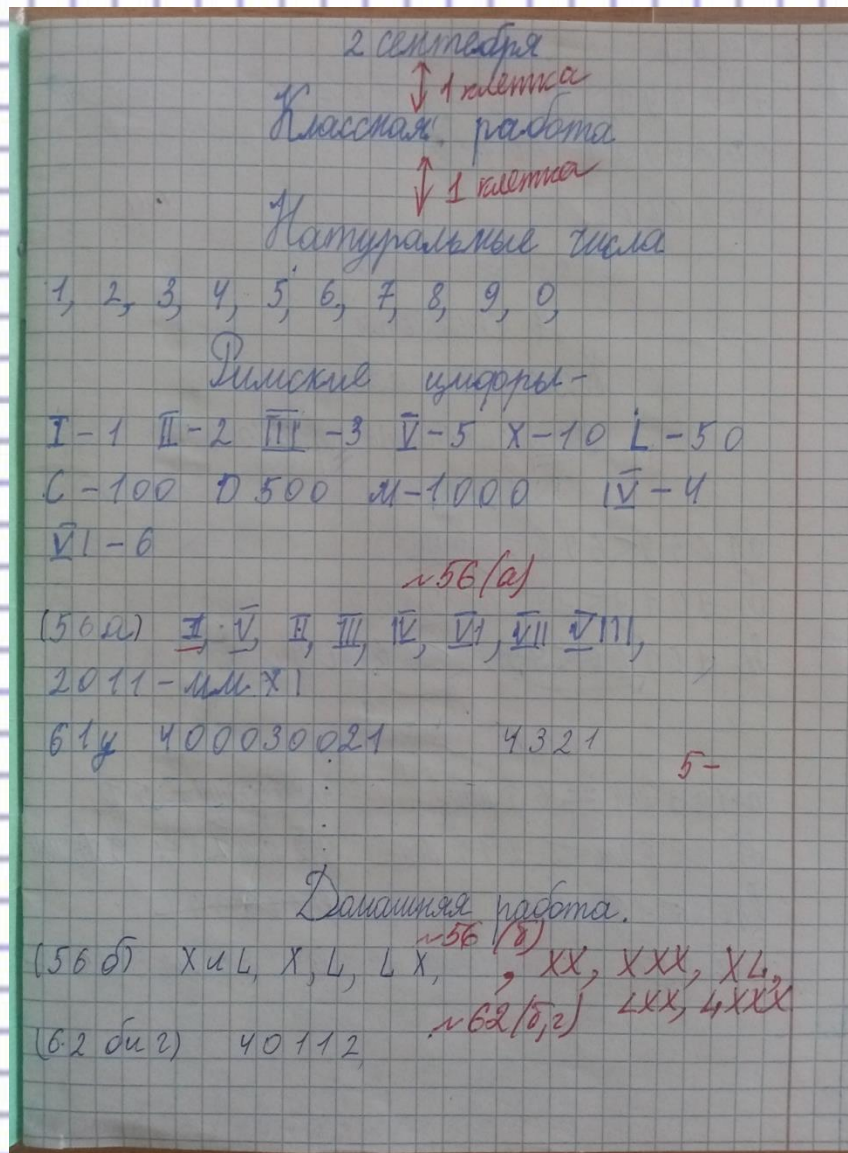 2 сентебря
1 клетка
Классная работа
1 клетка
Натуральные числа
1, 2, 3, 4, 5, 6, 7, 8, 9, 0,
Римские цифоры-
I-1 II-2 III-3 V-5 X-10 L-50
C-100 D 500 M-1000 IV-4
VI-6
№56(а)
(56а) I, V, II, III, IV, VI, VII VIII,
2011-ММ XI
61у 400030021 4321
5-
Домашняя работа.
№56 (б)
(56 б) X и L, X, L, LX, , XX, XXX, XL,
LXX, LXXX
№62(б,г)
(62 б и г) 40112